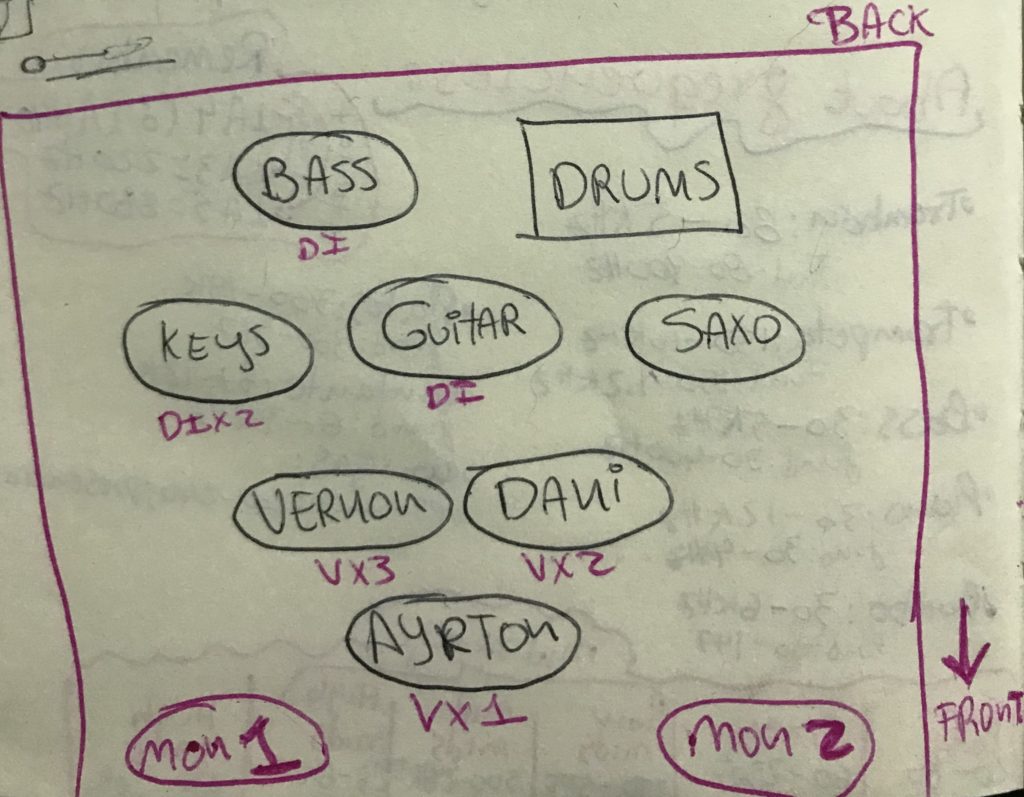 BACK
BASS
DI
DRUMS
KEYS
DIX2
GUITAR
DI
SAXO
VERNON
VX3
DANI
VX2
AYRTON
VX1
MON 1
MON 2
FRONT